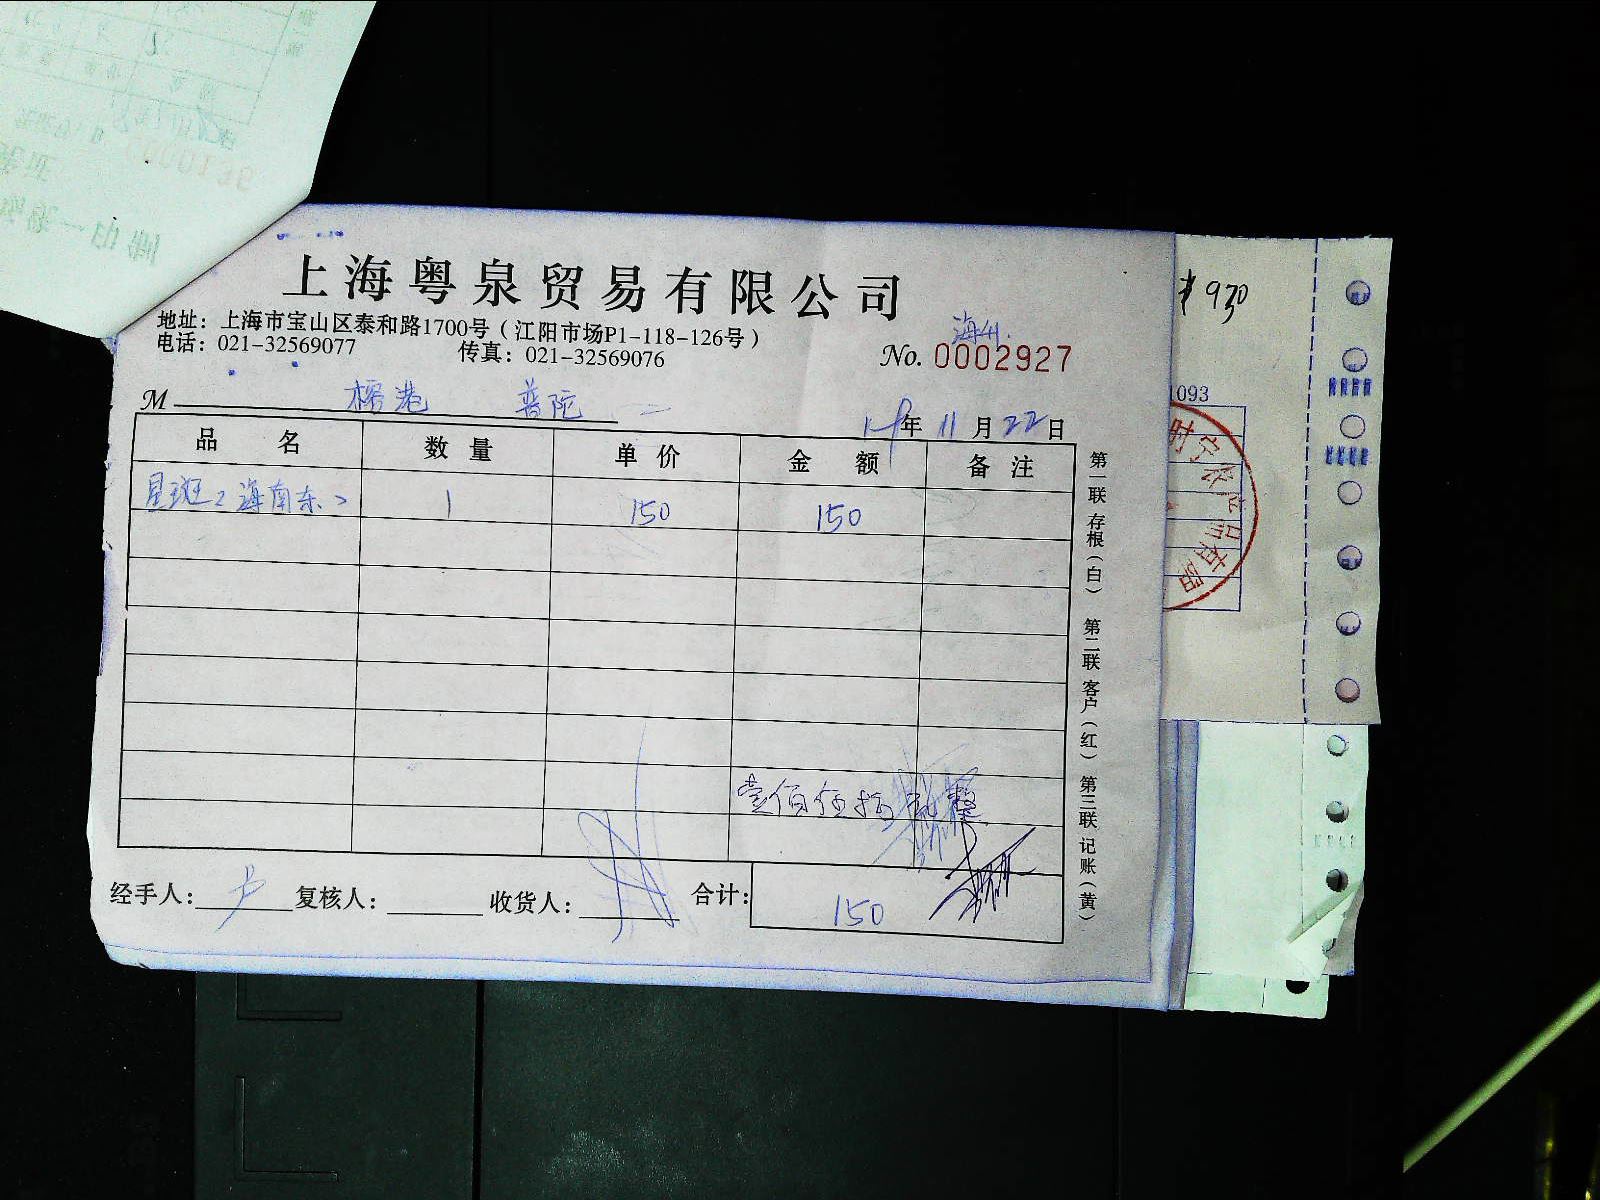 上海粤泉贸易有限公司
地址：上海市宝山区泰和路1700号（江阳市场P1-118-126号）
电话：021-32569077 传真：021-32569076
海州
No. 0002927
M 榕港 普陀
19年 11月 22日
品名 数量 单价 金额 备注
星斑（海南东） 1 150 150
壹佰伍拾 整
经手人：卢 复核人： 收货人： 合计：150
第一联 存根（白） 第二联 客户（红） 第三联 记账（黄）
¥930
1093
时宁农产品有限
0000136